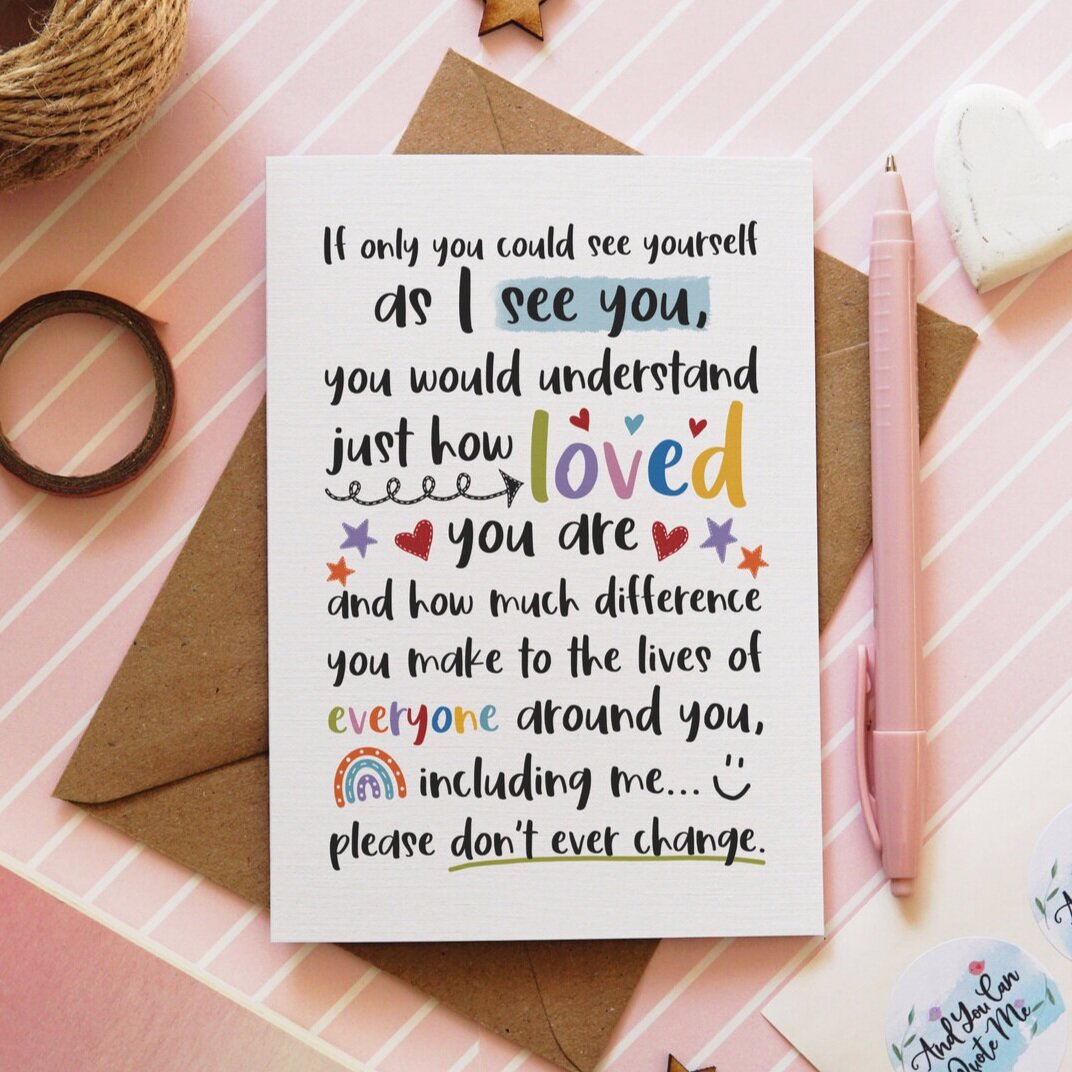 If only you could see yourself
as I see you,
you would understand
just how loved
you are
and how much difference
you make to the lives of
everyone around you,
including me...
please don't ever change.
And You Can
Quote Me